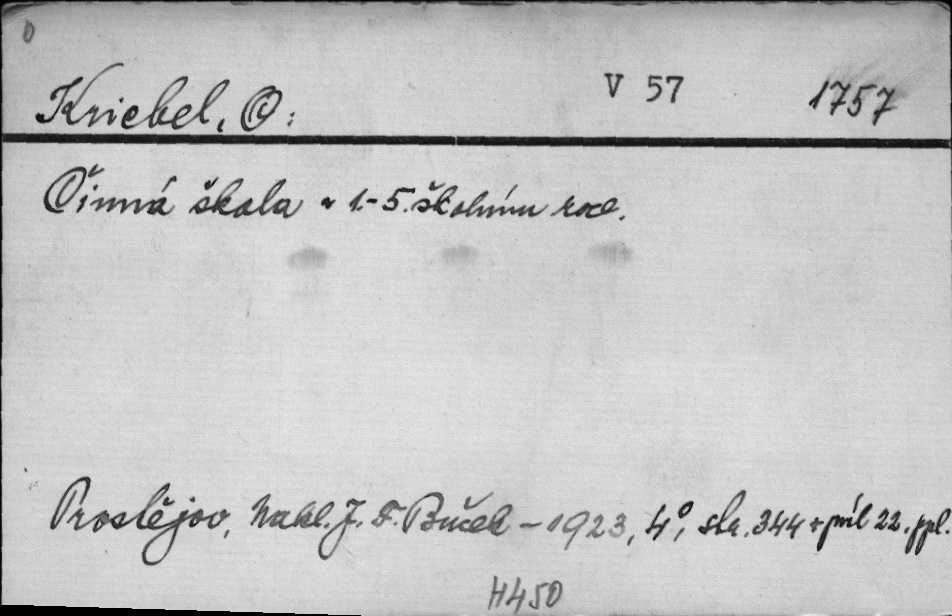 Kriebel, O:
V 57
1757
Činná škola v 1.-5. školním roce.
Prostějov, Nakl. J. F. Buček - 1923, 4°, str. 344 + příl 22.
H450